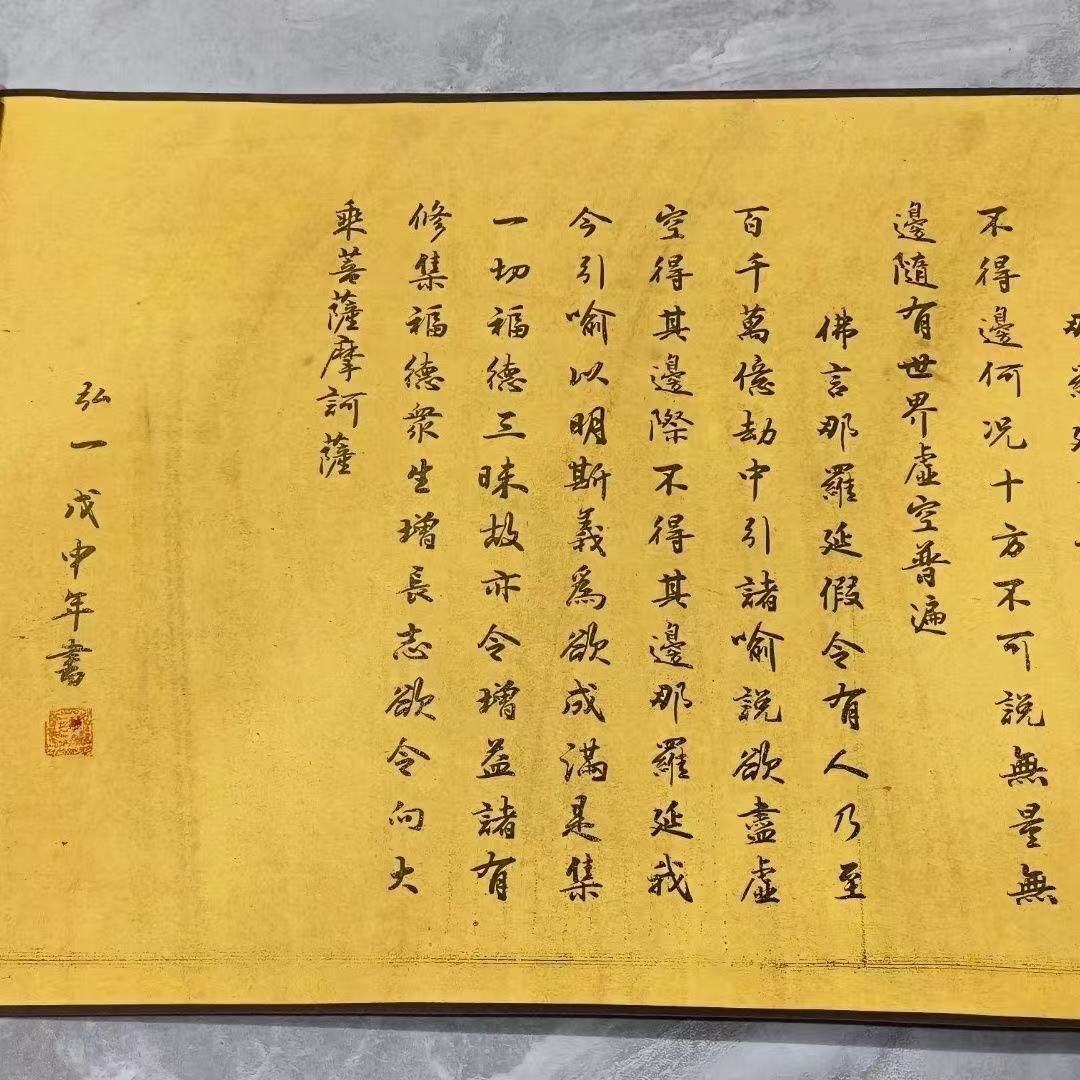 那羅延
不得邊何況十方不可說無量無
邊隨有世界虛空普遍
佛言那羅延假令有人乃至
百千萬億劫中引諸喻說欲盡虛
空得其邊際不得其邊那羅延我
今引喻以明斯義為欲成滿是集
一切福德三昧故亦令增益諸有
修集福德眾生增長志欲令向大
乘菩薩摩訶薩
弘一 戊申年書